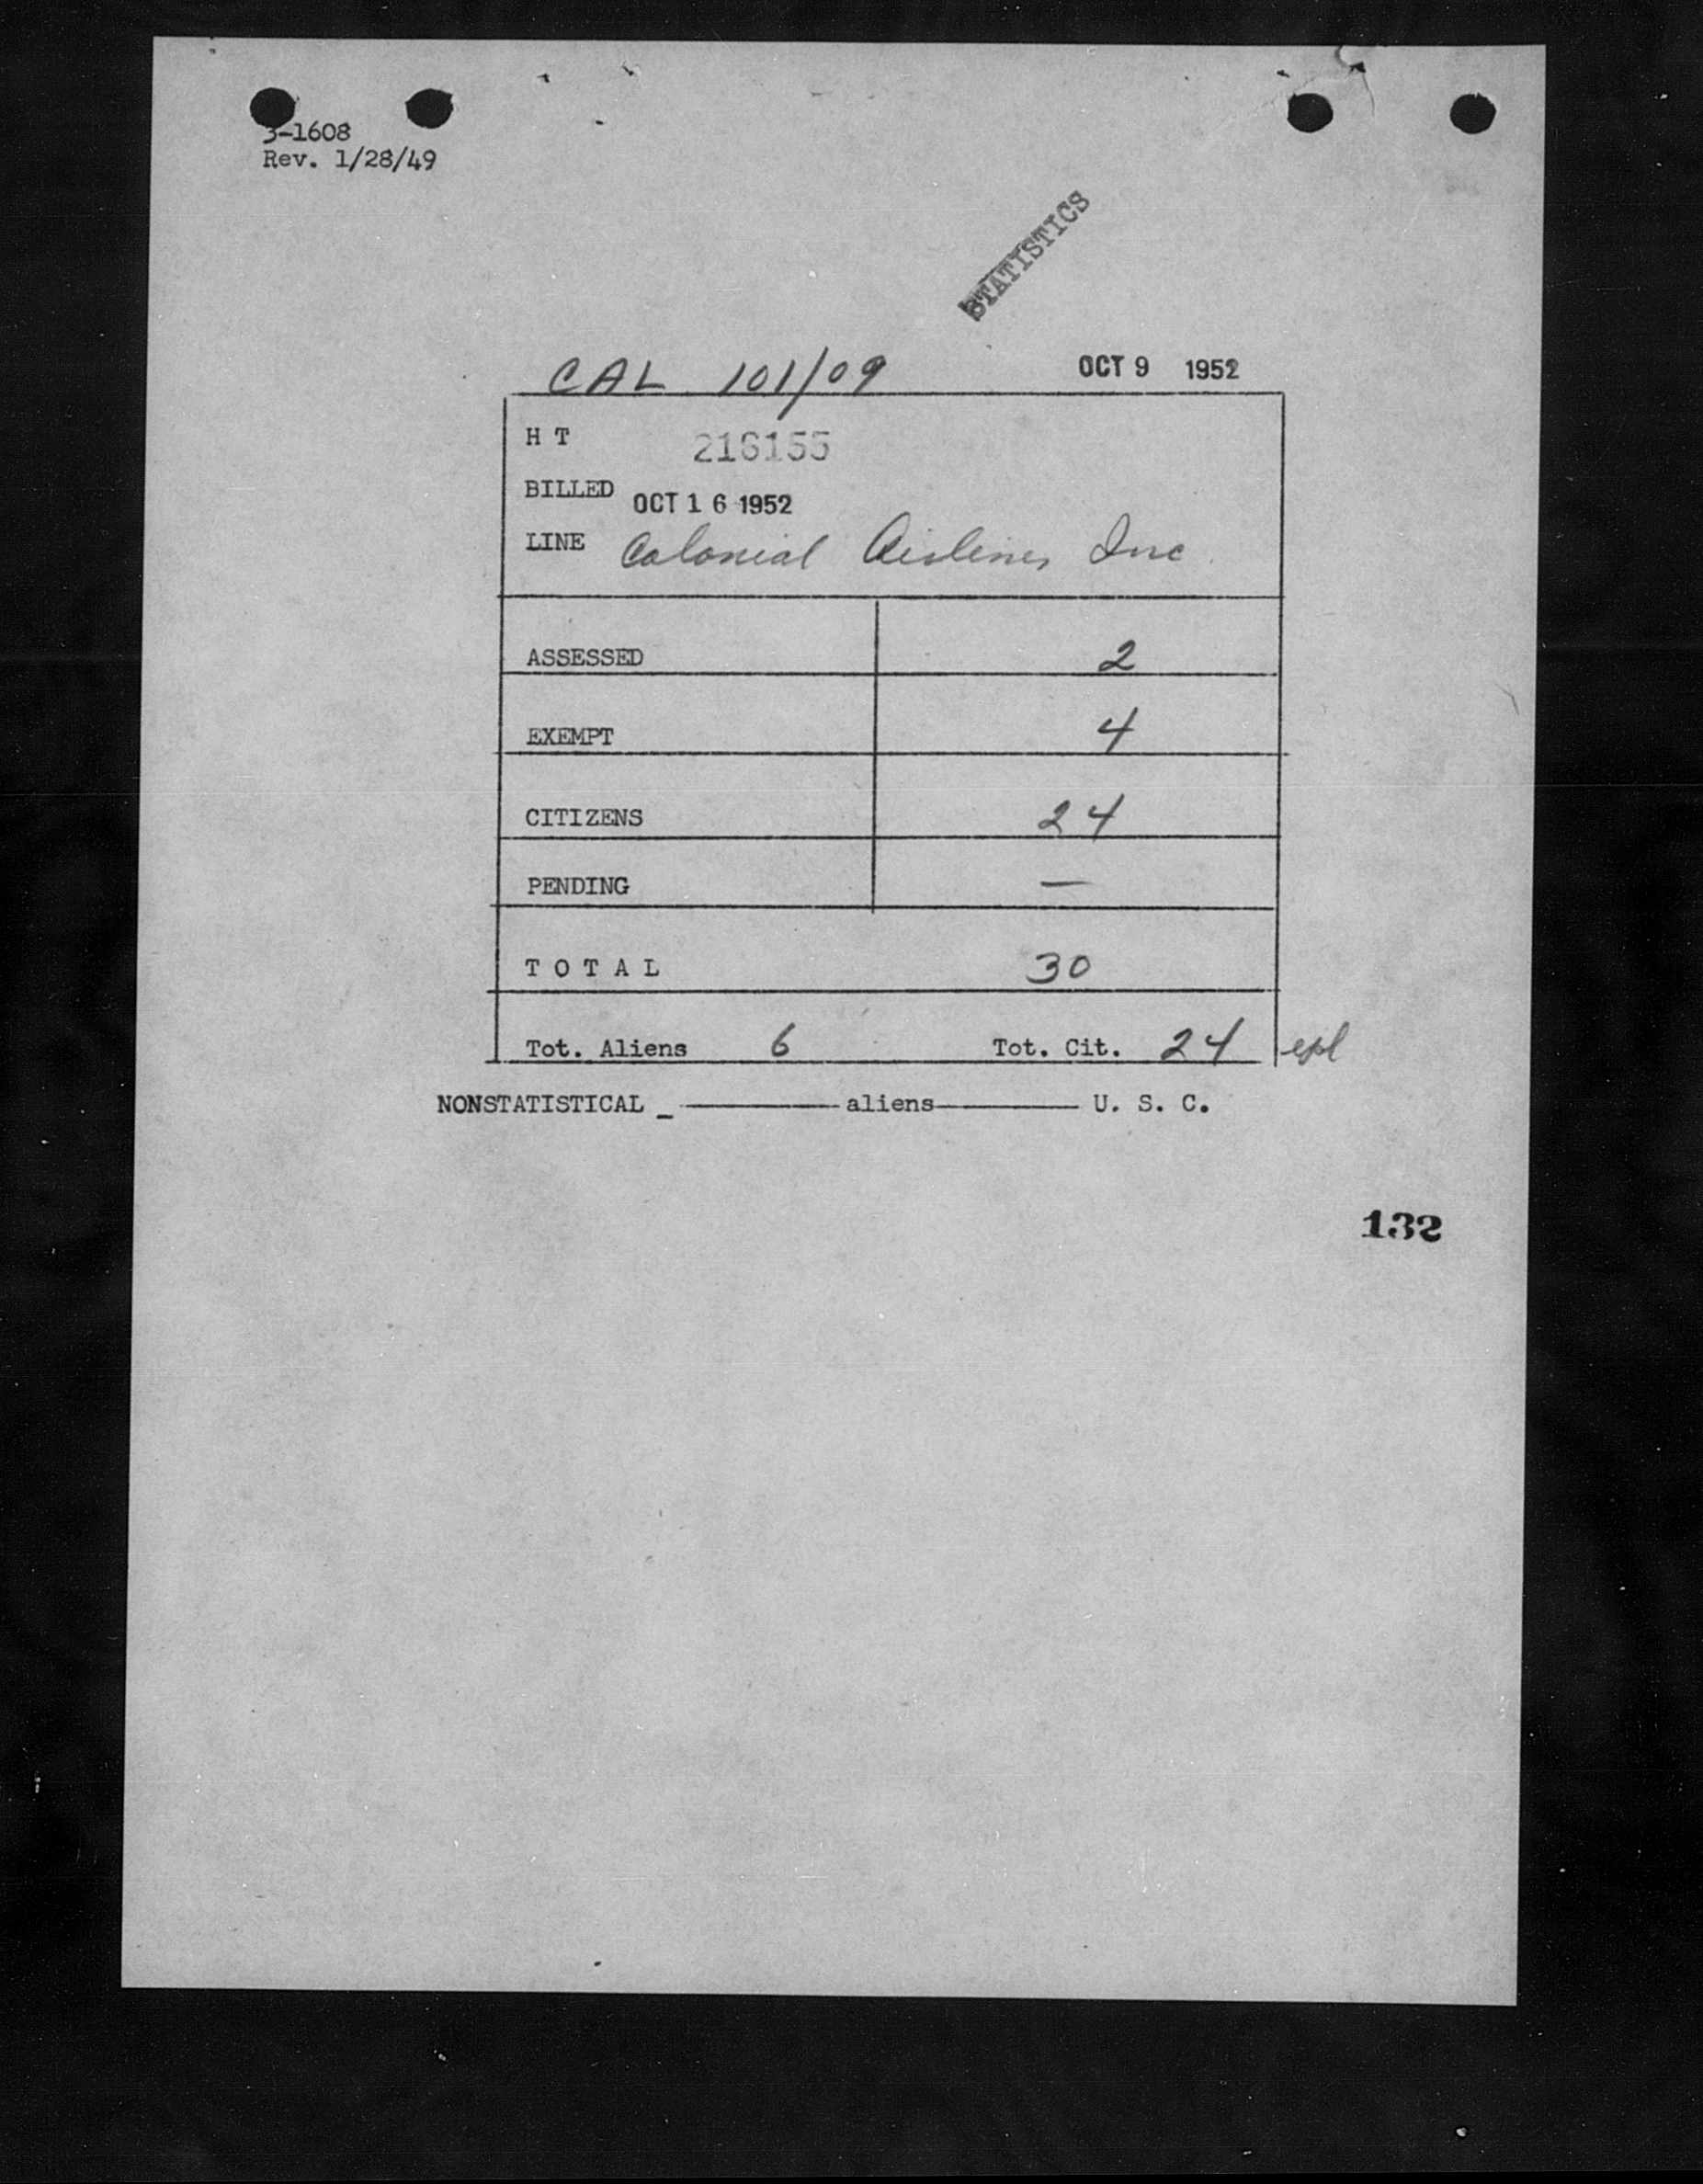 3-1608
Rev. 1/28/49
STATISTICS
CAL 101/09 OCT 9 1952
H T 216155
BILLED OCT 16 1952
LINE Colonial Airlines Inc.
ASSESSED 2
EXEMPT 4
CITIZENS 24
PENDING —
TOTAL 30
Tot. Aliens 6 Tot. Cit. 24
NONSTATISTICAL _ ———— aliens ———— U. S. C.
132